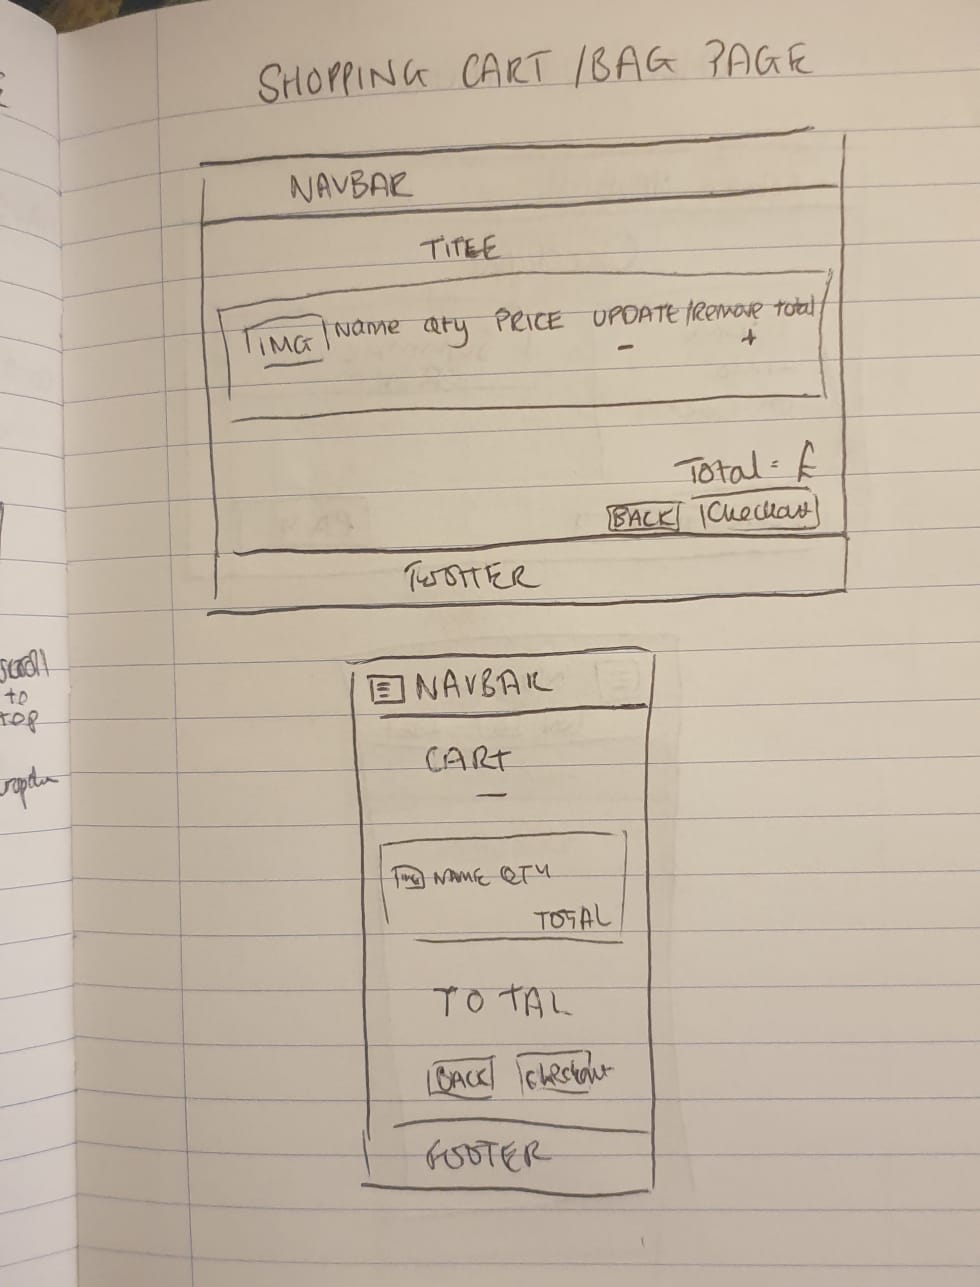 SHOPPING CART /BAG PAGE
NAVBAR
TITLE
IMG Name Qty PRICE UPDATE/Remove total
- +
Total = £
BACK Checkout
FOOTER
scroll
to
top
NAVBAR
CART
IMG NAME QTY
TOTAL
TOTAL
BACK Checkout
FOOTER